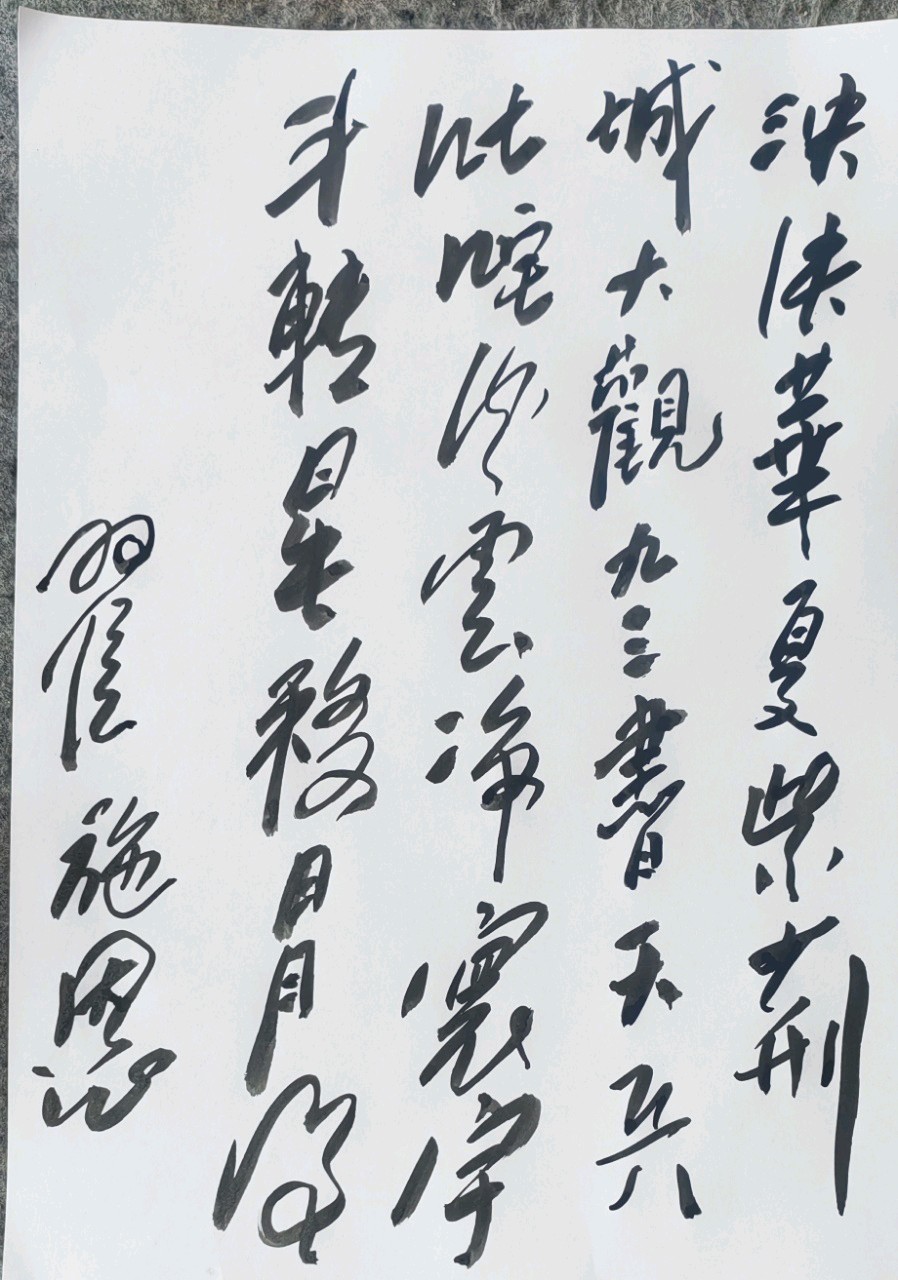 泱泱華夏紫荆
城大觀九三書天兵
叱咤风雲净寰宇
斗轉星移日月
施恩